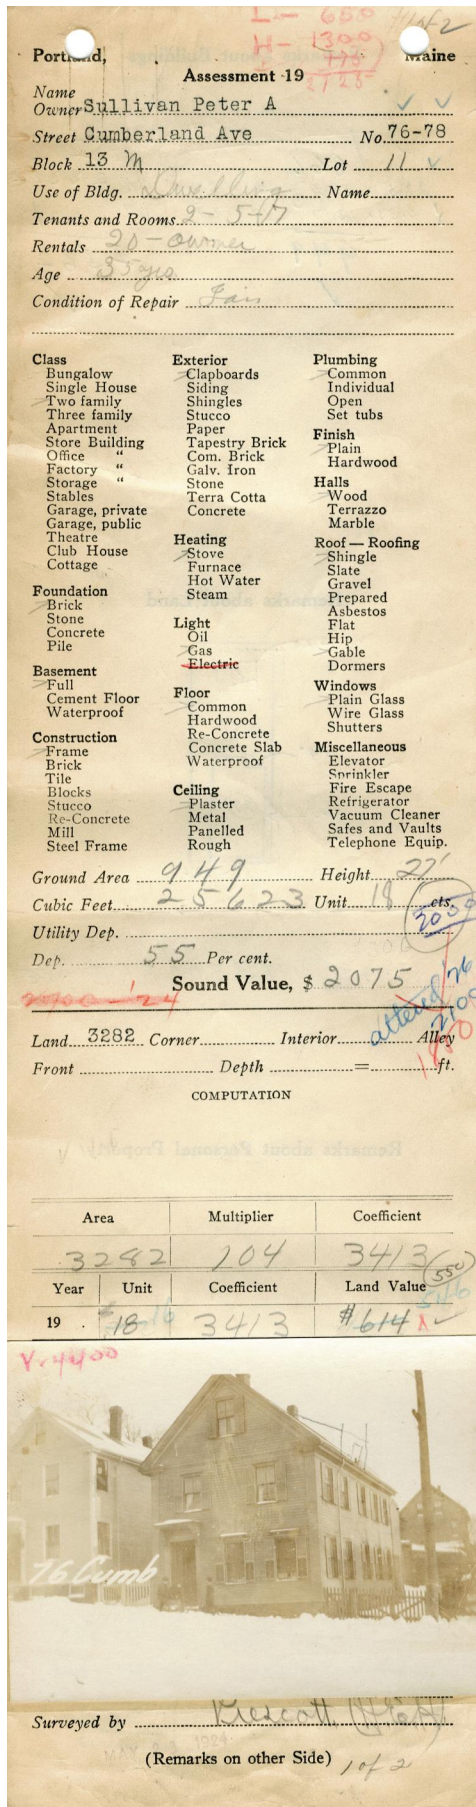 L - 650
H - 1300
1 of 2
2125
Portland, Maine
Assessment 19
Name
Owner Sullivan Peter A
Street Cumberland Ave No. 76-78
Block 13 M Lot 11
Use of Bldg. Dwelling Name
Tenants and Rooms 2 - 5+7
Rentals 20 - owner
Age 35 yrs
Condition of Repair Fair
Class
Bungalow
Single House
Two family
Three family
Apartment
Store Building
Office "
Factory "
Storage "
Stables
Garage, private
Garage, public
Theatre
Club House
Cottage
Foundation
Brick
Stone
Concrete
Pile
Basement
Full
Cement Floor
Waterproof
Construction
Frame
Brick
Tile
Blocks
Stucco
Re-Concrete
Mill
Steel Frame
Exterior
Clapboards
Siding
Shingles
Stucco
Paper
Tapestry Brick
Com. Brick
Galv. Iron
Stone
Terra Cotta
Concrete
Heating
Stove
Furnace
Hot Water
Steam
Light
Oil
Gas
Electric
Floor
Common
Hardwood
Re-Concrete
Concrete Slab
Waterproof
Ceiling
Plaster
Metal
Panelled
Rough
Plumbing
Common
Individual
Open
Set tubs
Finish
Plain
Hardwood
Halls
Wood
Terrazzo
Marble
Roof — Roofing
Shingle
Slate
Gravel
Prepared
Asbestos
Flat
Hip
Gable
Dormers
Windows
Plain Glass
Wire Glass
Shutters
Miscellaneous
Elevator
Sprinkler
Fire Escape
Refrigerator
Vacuum Cleaner
Safes and Vaults
Telephone Equip.
Ground Area 949 Height 22'
Cubic Feet 25623 Unit 18 cts.
2050
Utility Dep.
Dep. 55 Per cent.
Sound Value, $ 2075
altered '26
2100
1850
Land 3282 Corner Interior Alley
Front Depth = ft.
COMPUTATION
Area Multiplier Coefficient
3282 104 3413
550
Year Unit Coefficient Land Value
546
19 $18 16 3413 $614
V-4400
76 Cumb
Surveyed by Prescott (HEH)
1924
(Remarks on other Side) 1 of 2